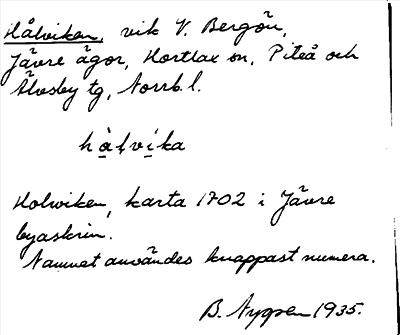 Hålviken, vik V. Bergön,
Jävre ägor, Hortlax sn, Piteå och
Älvsby tg, Norrb. l.
hålvika
Holwiken, karta 1702 i Jävre
byaskrin.
Namnet användes knappast numera.
B. Nygren 1935.